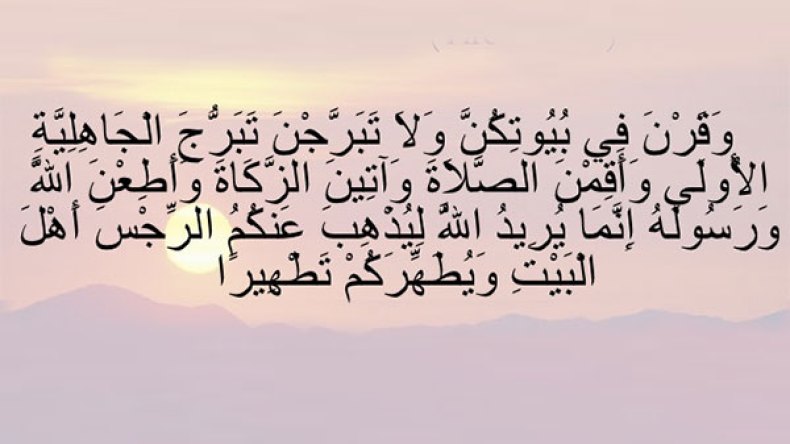 وَقَرْنَ فِي بُيُوتِكُنَّ وَلَا تَبَرَّجْنَ تَبَرُّجَ الْجَاهِلِيَّةِ
الْأُولَي وَأَقِمْنَ الصَّلَاةَ وَآتِينَ الزَّكَاةَ وَأَطِعْنَ اللَّهَ
وَرَسُولَهُ إِنَّمَا يُرِيدُ اللَّهُ لِيُذْهِبَ عَنكُمُ الرِّجْسَ أَهْلَ
الْبَيْتِ وَيُطَهِّرَكُمْ تَطْهِيرًا